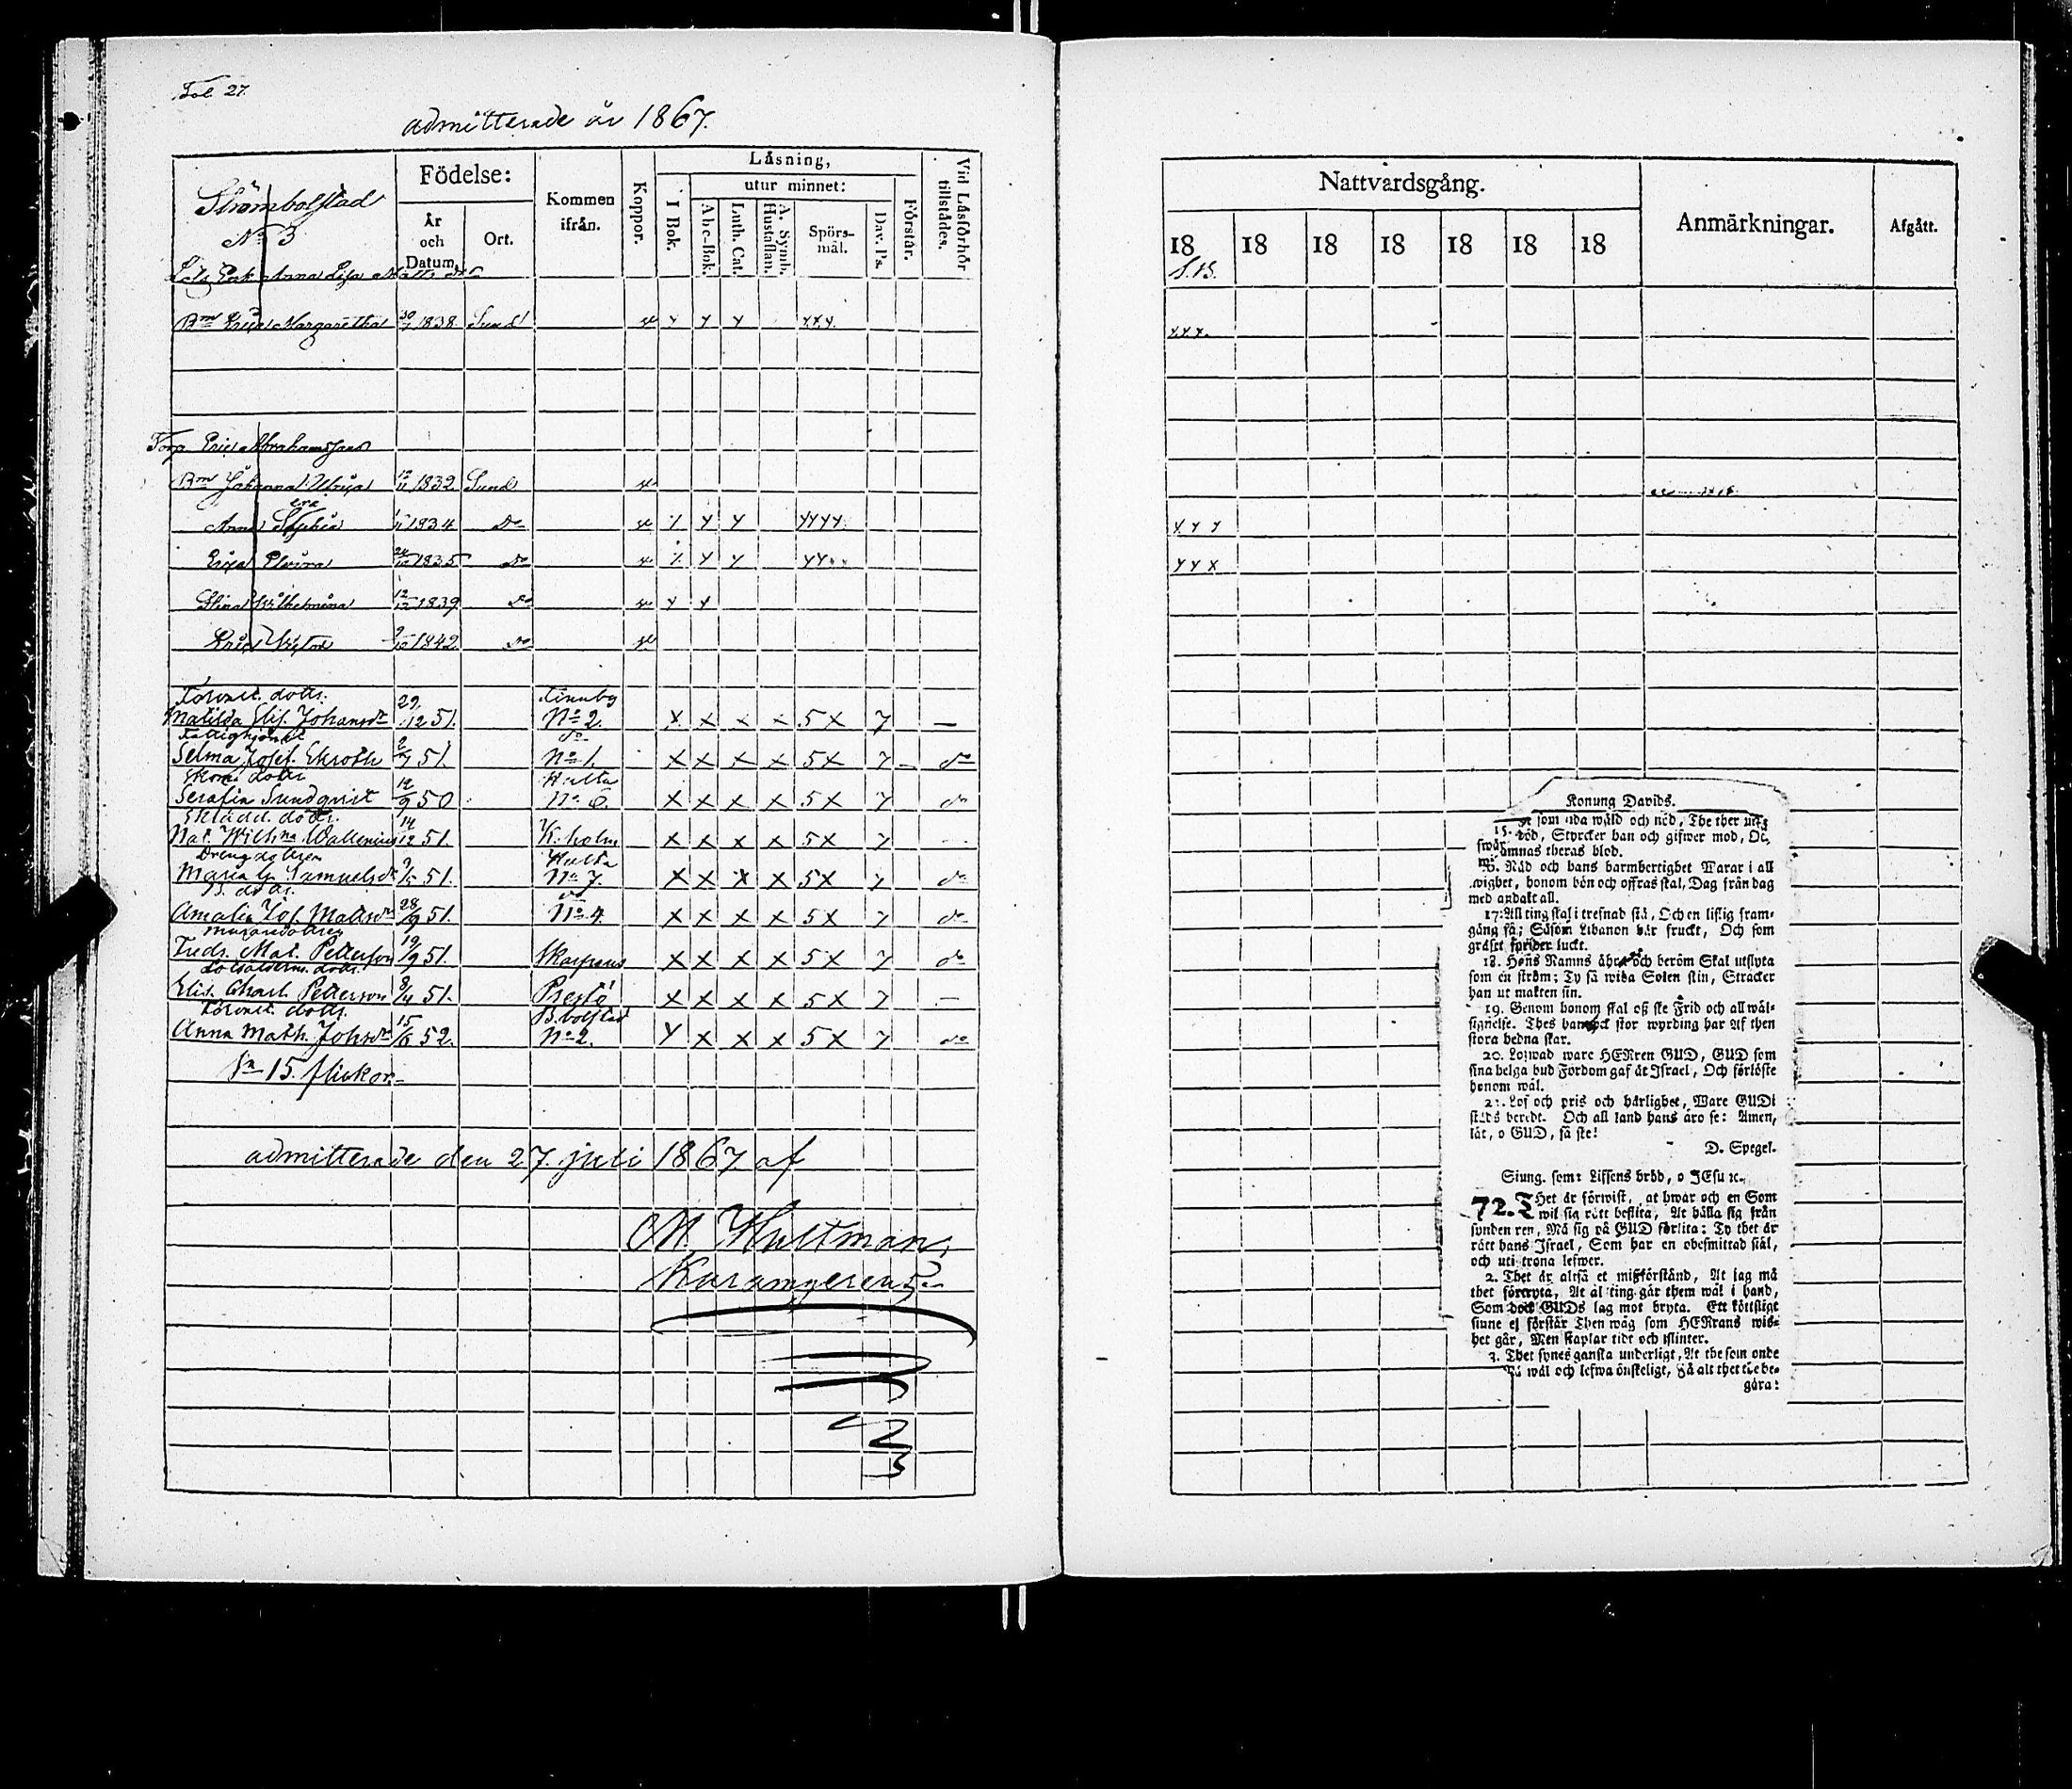 Fol. 27.
admitterade år 1867.
Strömbolstad
No 3
Födelse:
År och Datum.
Ort.
Kommen ifrån.
Koppor.
Läsning,
I Bok.
utur minnet:
Abc-Bok.
Luth. Cat.
A. Symb. Hustaflan.
Spörs-mål.
Dav. Ps.
Förstår.
Vid Läsförhör tillstädes.
Anna Lisa Matts
Bm Erica Margaretha 30 1838 Sund x y y y y.y.y.
Torp. Eric Abrahamsson
Bm Johanna Ulrica 12/11 1832 Sund
Anna Sophia 1834 Do y y y y y y
Erica 24/10 1835 do y y y y
Stina Wilhelmina 12/12 1839 do y y
Eric Victor 9/10 1842 do
Matilda Elis. Johansdr 29/12 51. Finnby No 2. x x x x 5x 7 —
Selma Josef. Ekroth 2/7 51. do No 1. x x x x 5x 7 do
Serafia Sundqvist 12/9 50 Hulta No 6. x x x x 5x 7 do
Nat. Wilhna Wallenius 14/12 51. K.holm x x x x 5x 7
Drengdottren
Maria G. Samuelsdr 51. Hulta No 7. x x x x 5x 7 do
B. dotr.
Amalia Jos. Mattsdr 28/9 51. do No 4. x x x x 5x 7 do
Muraredottren
Fredr. Mat. Petterson 19/9 51. Skarpans x x x x 5x 7 do
Elis. Charl. Petterson 8/4 51. Prestö x x x x 5x 7 —
Anna Math. Johsdr 15/6 52. B.bolstad No 2. y x x x 5x 7 do
Sa 15. flickor.
admitterade den 27. juli 1867 af
M. Hultman,
Nattvardsgång.
Anmärkningar.
Afgått.
18 18 18 18 18 18 18
S.B.
y y x.
x y y
y y x
Konung Davids.
wäld och nöd, The ther
död, Styrcker han och gifwer mod, Oc,
ämnas theras blod.
16. Nåd och hans barmhertighet Warar i all
wighet, honom bön och offras skal, Dag från dag
med andakt all.
17. All ting skal i trefnad stå, Och en liflig fram-
gång få; Såsom Libanon bär fruckt, Och som
gräset sprider luckt.
18. Hans Namns ähra och beröm Skal utflyta
som en ström; Ty så wida Solen skin, Stracker
han ut makten sin.
19. Genom honom skal oß ske Frid och all wäl-
signelse. Thes han ock stor wyrding har Af then
stora hedna skar.
20. Lofwad ware HERren GUD, GUD som
sina helga bud Fordom gaf åt Israel, Och förlöste
honom wäl.
21. Lof och pris och härlighet, Ware GUDi
städs beredt. Och all land hans äro se: Amen,
låt, o GUD, så ske!
D. Spegel.
Siung. som: Lifsens bröd, o JEsu ꝛc.
72. THet är förwist, at hwar och en Som
wil sig rätt beflita, At hålla sig från
synden ren, Må sig på GUD förlita: Ty thet är
rätt hans Israel, Som har en obesmittad siäl,
och uti trona lefwer.
2. Thet är altså et mißförstånd, At jag må
thet förtryta, At al ting går them wäl i hand,
Som dock GUDs lag mot bryta. Ett köttsligt
sinne ej förstår Then wäg som HERrans wis-
het går, Men staplar tidt och slinter.
3. Thet synes ganska underligt, At the som onde
wäl och lefwa önskeligt, Få alt thet the be-
gära: